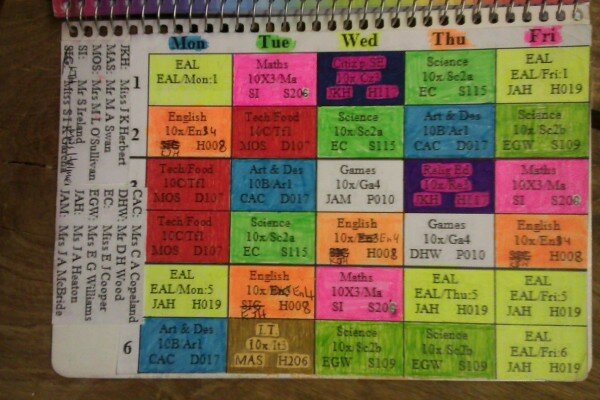 Mon Tue Wed Thu Fri
JKH: Miss J K Herbert
MAS: Mr M A Swan
MOS: Mrs M L O'Sullivan
SI: Mr S Ireland
CAC: Mrs C A Copeland
DHW: Mr D H Wood
EC: Miss E J Cooper
EGW: Mrs E G Williams
JAH: Ms J A Heaton
JAM: Mrs J A McBride
1
EAL
EAL/Mon:1
Maths
10X3/Ma
SI S208
JKH H112
Science
10x/Sc2a
EC S115
EAL
EAL/Fri:1
JAH H019
2
English
10x/En
H008
Tech/Food
10C/Tf1
MOS D107
Science
10x/Sc2a
EC S115
Art & Des
10B/Ar1
CAC D017
Science
10x/Sc2b
EGW S109
Tech/Food
10C/Tf1
MOS D107
Art & Des
10B/Ar1
CAC D017
Games
10x/Ga4
JAM P010
Relig Ed
10x/Re
JKH
Maths
10X3/Ma
SI S208
Tech/Food
10C/Tf1
MOS D107
Science
10x/Sc2a
EC S115
English
10x/En4
H008
Games
10x/Ga4
DHW P010
English
10x/En 4
H008
EAL
EAL/Mon:5
JAH H019
English
10x/En4
H008
Maths
10X3/Ma
SI S208
EAL
EAL/Thu:5
JAH H019
EAL
EAL/Fri:5
JAH H019
6
Art & Des
10B/Ar1
CAC D017
I.T.
10x It3
MAS H206
Science
10x/Sc2b
EGW S109
Science
10x/Sc2b
EGW S109
EAL
EAL/Fri:6
JAH H019